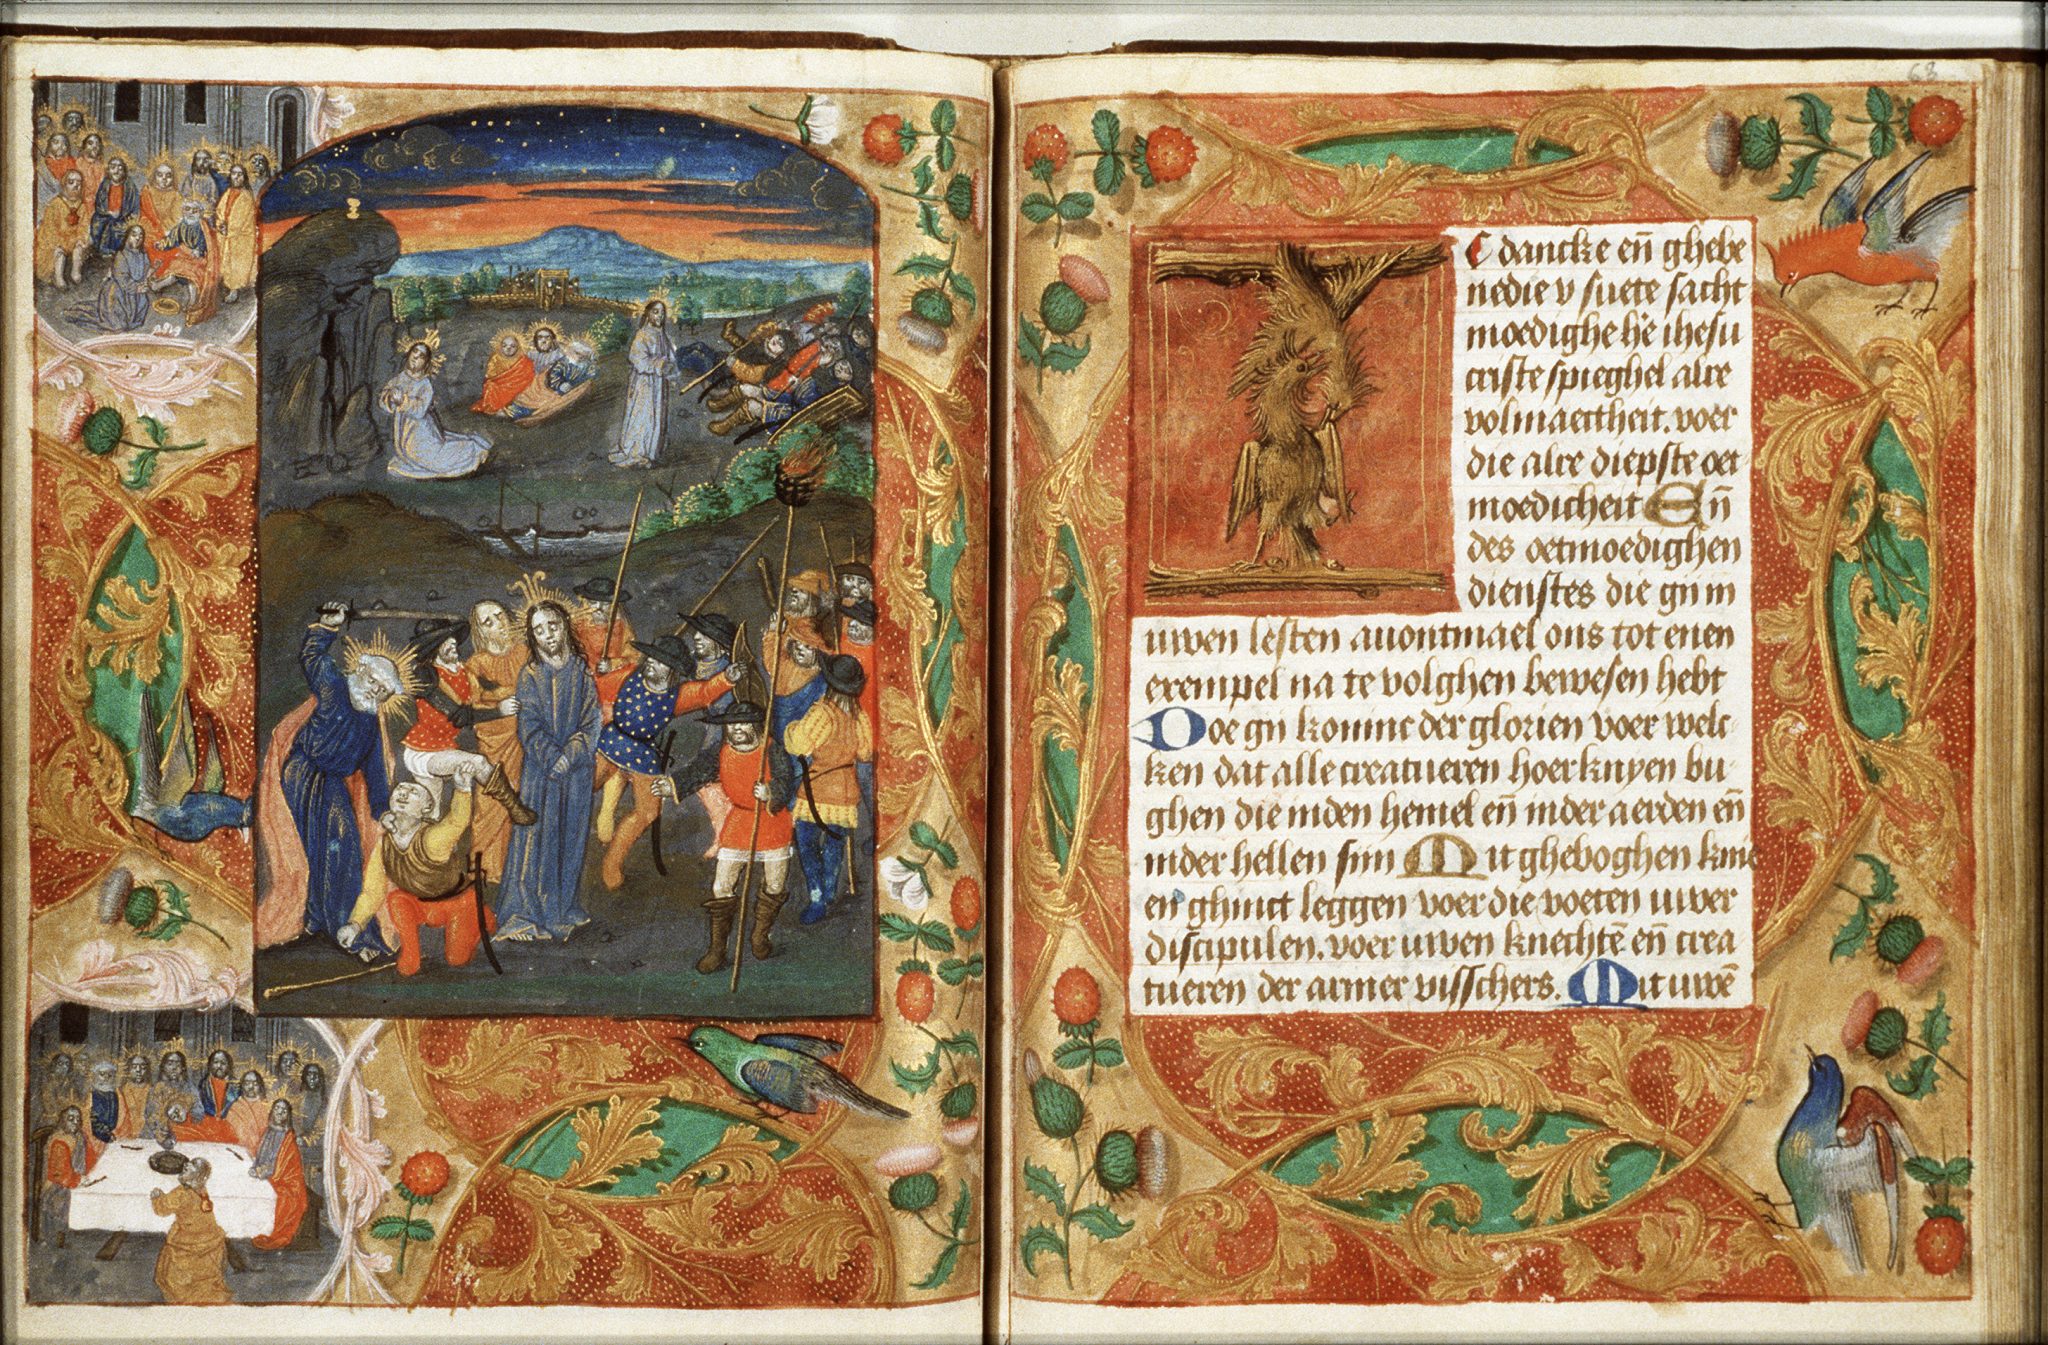 68
C dancke en̄ ghebe
nedie v suete sacht
moedighe h̄e ihesu
criste spieghel alre
volmaectheit. voer
die alre diepste oet
moedicheit En̄
des oetmoedighen
dienstes die gij in
uwen lesten auontmael ons tot enen
exempel na te volghen bewesen hebt
Doe gij koninc der glorien voer welc-
ken dat alle creatueren hoer knyen bu-
ghen die inden hemel en̄ inder aerden en̄
inder hellen sijn Mit gheboghen knie
en̄ ghinct leggen voer die voeten uwer
discipulen. voer uwen knechtē en̄ crea
tueren der armer visschers. Mit uwē